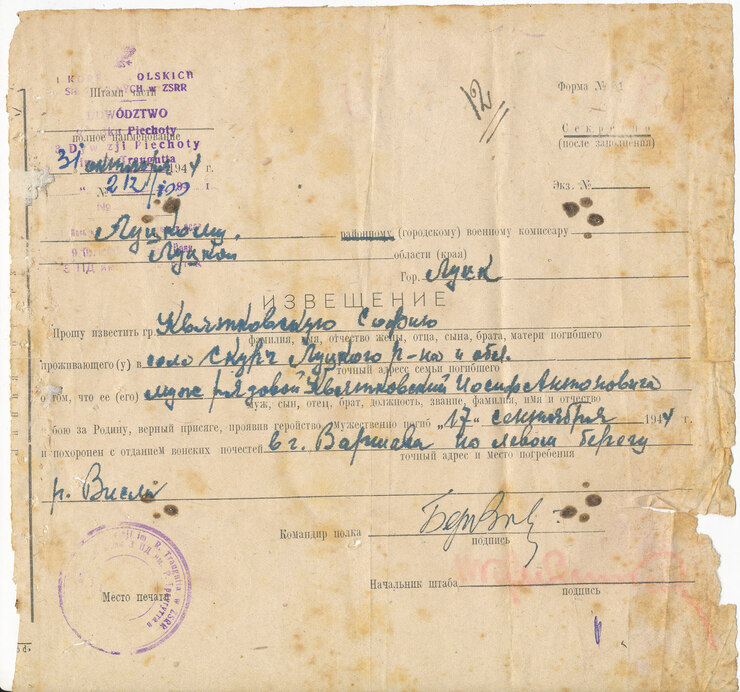 I OLSKICH
w ZSRR
Штамп части
Piechoty
полное наименование
Piechoty
31 октября 1944 г.
№ 212/
12
Форма №
Секретно
(после заполнения)
Экз. №
Луцкому районному (городскому) военному комиссару
Луцкой области (края)
Гор. Луцк
ИЗВЕЩЕНИЕ
Прошу известить гр. Квятковскую Софию
фамилия, имя, отчество жены, отца, сына, брата, матери погибшего
проживающего(у) в село Скурч Луцкого р-на и обл.
точный адрес семьи погибшего
о том, что ее (его) муж рядовой Квятковский Иосиф Антонович
муж, сын, отец, брат, должность, звание, фамилия, имя и отчество
бою за Родину, верный присяге, проявив геройство мужественно погиб "17" сентября 1944
и похоронен с отданием воинских почестей в г. Варшава по левом берегу
точный адрес и место погребения
р. Висли
Командир полка
подпись
Начальник штаба
подпись
Место печати
im. R. Traugutta w ZSRR